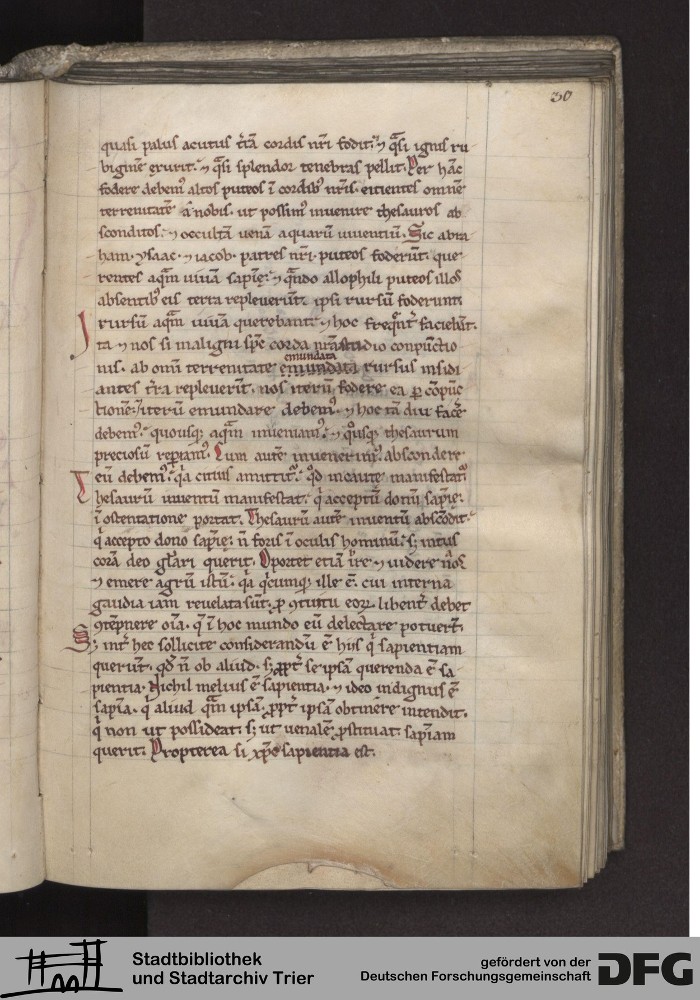 30
quasi palus acutus t̄rā cordis nr̄i fodit. ⁊ q̄si ignis ru
biginē exurit. ⁊ q̄si splendor tenebras pellit. Per hāc
fodere debem᷒ altos puteos ī cordib᷒ nr̄is. eicientes omnē
terrenitatē a nobis. ut possim᷒ inuenire thesauros ab
sconditos. ⁊ occultā uenā aquarū uiuentiū. Sic abra
ham. ysaac. ⁊ iacob. patres nr̄i. puteos foderūt. que
rentes aq̄m uiuā sapiē. ⁊ q̄ndo allophili puteos illos
absentib᷒ eis terra repleuerūt. ipsi rursū foderunt
rursū aq̄m uiuā querebant. ⁊ hoc freq̄nt̄ faciebāt.
Ita ⁊ nos si maligni sp̄c corda nr̄a studio conpūctio
nis. ab omī terrenitate emundata rursus insidi
emundata
antes t̄ra repleuerīt. nos iterū fodere ea p̄ cōpūc
tionē. iterū emundare debem᷒. ⁊ hoc tā diu facē
debem᷒. quousq; aq̄m inueniam᷒. ⁊ q᷒usq; thesaurum
preciosū rep̄iam᷒. Cum autē inuenerim᷒. abscondere
eū debem᷒. q̄a citius amittit᷑. q̄d incaute manifestat᷑.
Thesaurū inuentū manifestat. q̄ acceptū donū sapiē.
ī ostentatione portat. Thesaurū autē inuentū abscōdit.
q̄ accepto dono sapiē. n̄ foris ī oculis hominū. s; intus
corā deo gl̄ari querit. Oportet etiā ire ⁊ uidere nos
⁊ emere agrū istū. q̄a q̄cumq; ille ē. cui interna
gaudia iam reuelata sūt. p̄ ꝯtuitu eoꝝ libent̄ debet
ꝯtēpnere oīa. q̄ ī hoc mundo eū delectare potuerīt.
S; int̄ hec sollicite considerandū ē hiis q̄ sapientiam
querūt. q̄d n̄ ob aliud. s; ꝓpt̄ se ipsā querenda ē sa
pientia. Nichil melius ē sapientia. ⁊ ideo indignus ē
sapīa. q̄ aliud q̄m ipsā. ꝓpt̄ ipsā obtinere intendit.
q̄ non ut possideat. s; ut uenalē ꝓstituat. sapīam
querit. Propterea si xp̄c sapientia est.
Stadtbibliothek
und Stadtarchiv Trier
gefördert von der
Deutschen Forschungsgemeinschaft
DFG